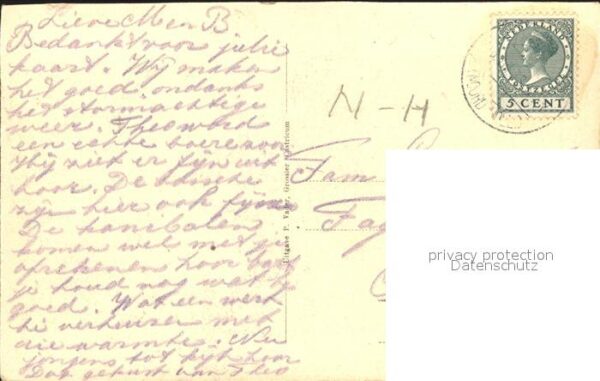 Lieve M en B
Bedankt voor jullie
kaart. Wij maken
het goed, ondanks
het stormachtige
weer. Theo word
een echte boerezoon
Hij ziet er fijn uit
hoor. De
zijn hier ook fijn
De kanibalen
komen wel met je
afrekenen hoor
je houd nog wat
goed. Wat een werk
te verhuizen met
die warmte. Nu
jongens tot kijk hoor
Dag gekust van Theo
Uitgave P. Vader, Grossier Castricum
NEDERLAND
5 CENT
N-H
Fam
privacy protection
Datenschutz